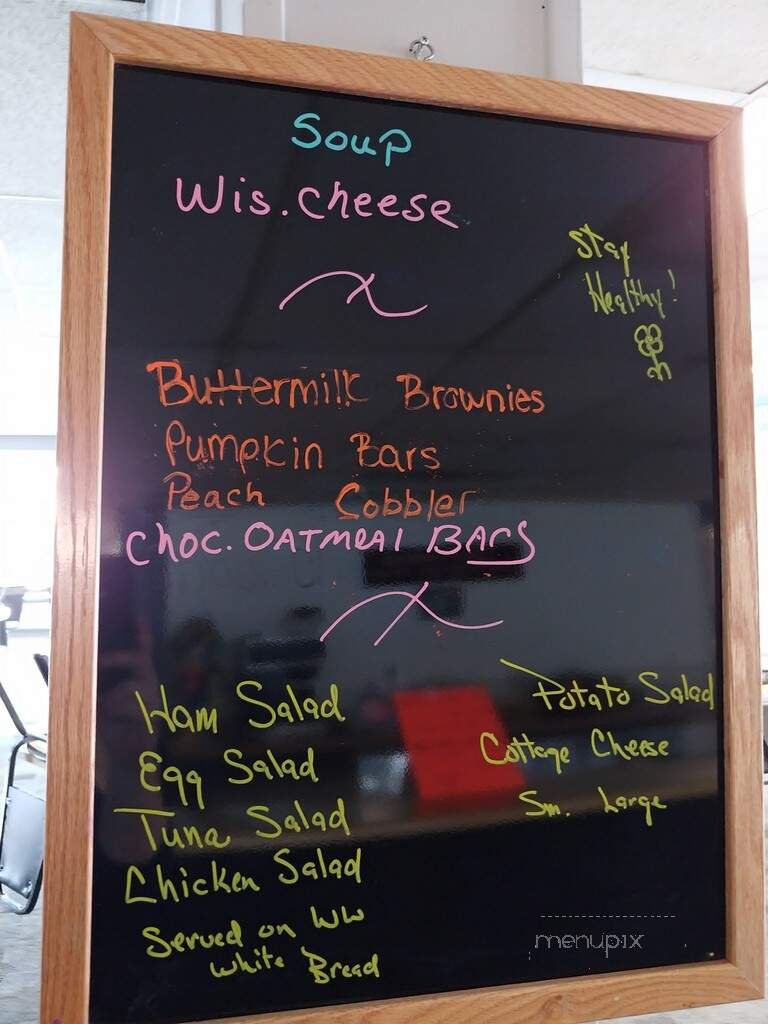 Soup
Wis. Cheese
Stay
Healthy!
Buttermilk Brownies
Pumpkin Bars
Peach Cobbler
Choc. OATMEAl BARS
Ham Salad
Egg Salad
Tuna Salad
Chicken Salad
Served on WW
White Bread
Potato Salad
Cottage Cheese
Sm. Large
menupix